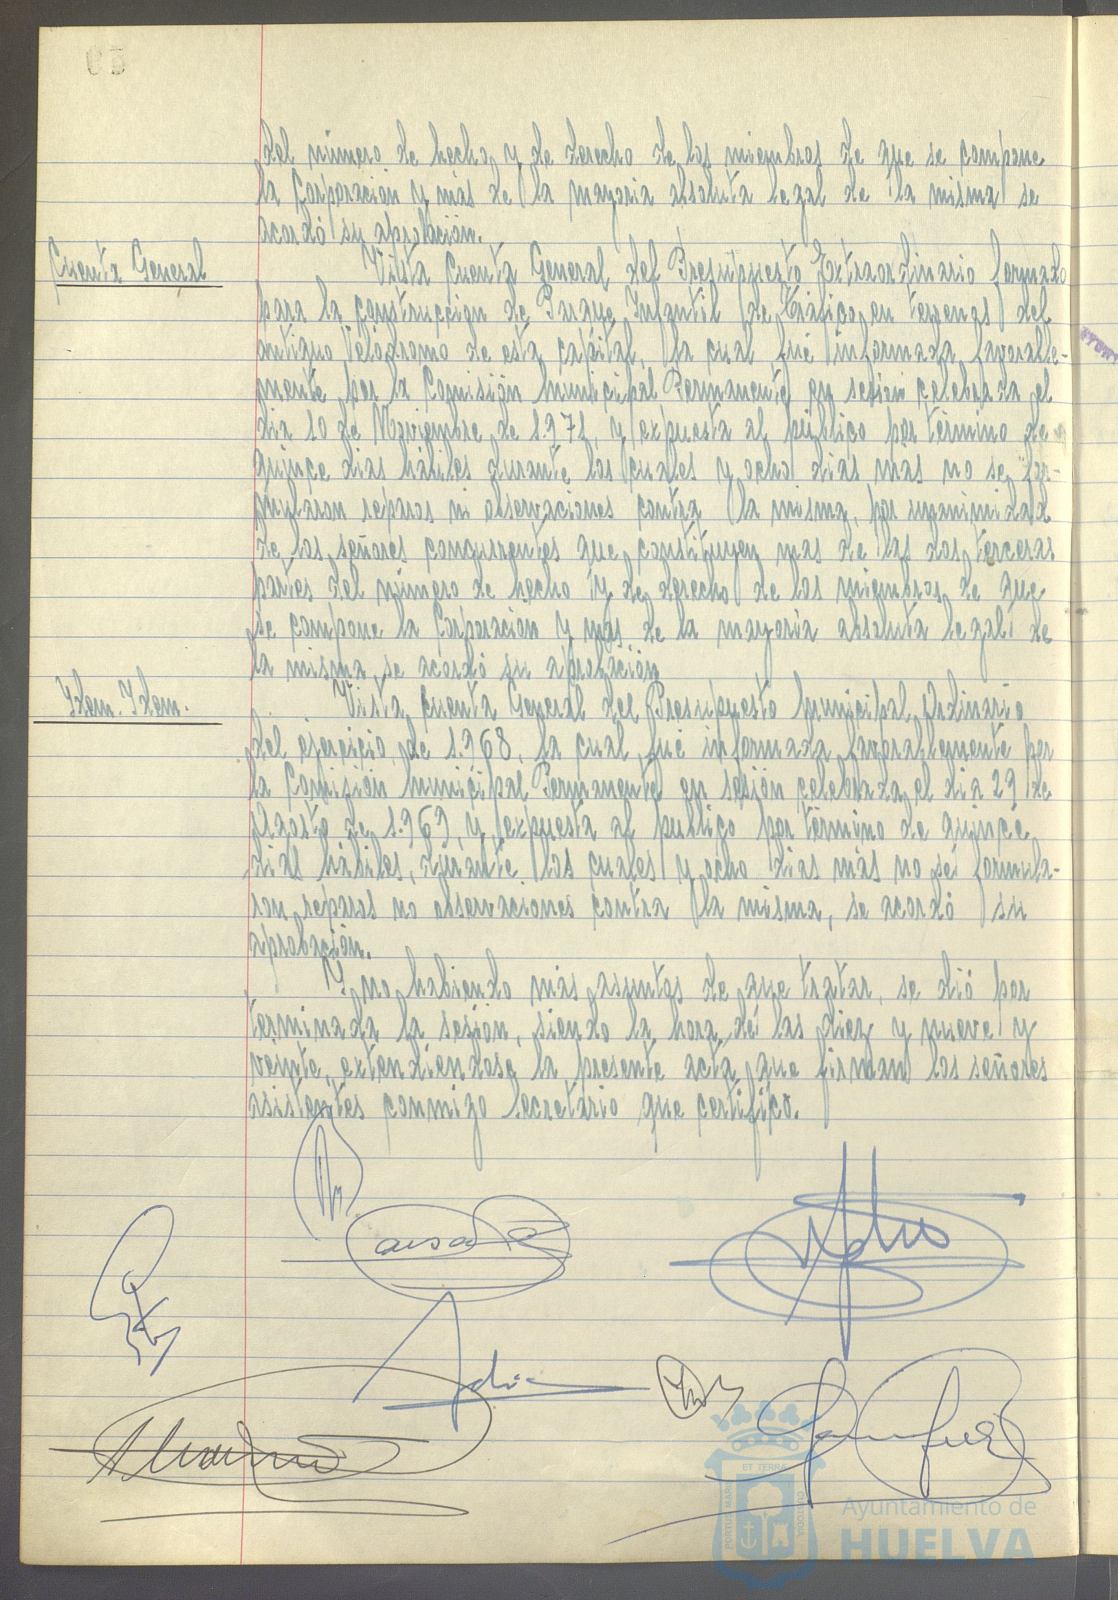 del número de hecho y de derecho de los miembros de que se compone
la Corporación y más de la mayoria absoluta legal de la misma se
acordó su aprobación.
Cuenta General
Vista Cuenta General del Presupuesto Extraordinario formado
para la construcción de Parque Infantil de Tráfico en terrenos del
antiguo Velódromo de esta capital, la cual fué informada favorable-
mente por la Comisión Municipal Permanente en sesión celebrada el
dia 10 de Noviembre de 1.971, y expuesta al público por término de
quince dias hábiles durante los cuales y ocho dias más no se for-
mularon reparos ni observaciones contra la misma, por unanimidad
de los señores concurrentes que constituyen mas de las dos terceras
partes del número de hecho y de derecho de los miembros de que
se compone la Corporación y más de la mayoría absoluta legal de
la misma se acordó su aprobación
Idem. Idem.
Vista cuenta General del Presupuesto Municipal Ordinario
del ejercicio de 1.968, la cual fué informada favorablemente por
la Comisión Municipal Permanente en sesión celebrada el dia 29 de
Agosto de 1.969, y expuesta al publico por término de quince
dias hábiles, durante los cuales y ocho dias más no se formula-
ron reparos no observaciones contra la misma, se acordó su
aprobación.
Y no habiendo más asuntos de que tratar, se dió por
terminada la sesión, siendo la hora de las diez y nueve y
veinte, extendiendose la presente acta que firman los señores
asistentes conmigo Secretario que certifico.
PORTUS MARIS
ET TERRAE
CUSTODIA
Ayuntamiento de
HUELVA